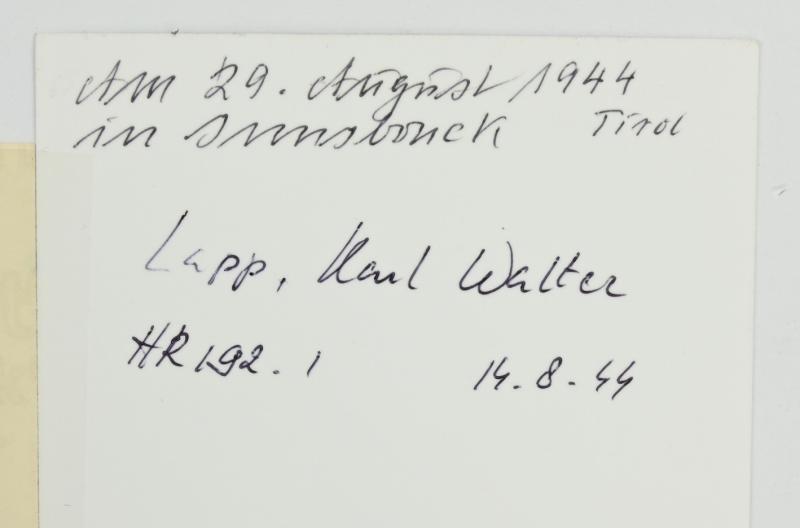 Am 29. August 1944
in Innsbruck Tirol
Lapp, Karl Walter
HR 192. 1 14. 8. 44